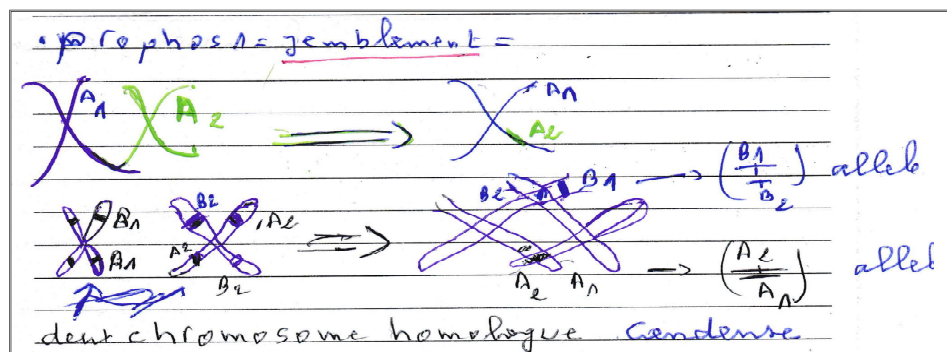 . prophos1 = jemblement =
A1 A2 A1 A2
B2 B1 → (B1/B2) allele
B1 B2 A2
A1 A2 B2 A2 A1 → (A2/A1) allele
deut chromosome homologue Condense